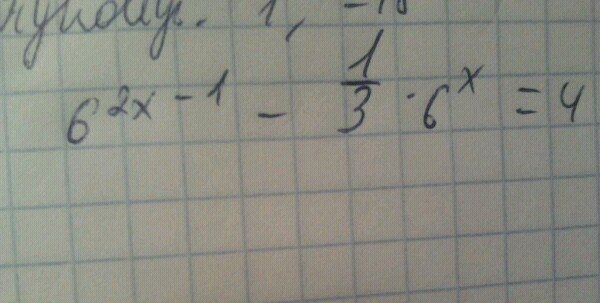 1, -18
6^{2x-1} - \frac{1}{3} \cdot 6^x = 4